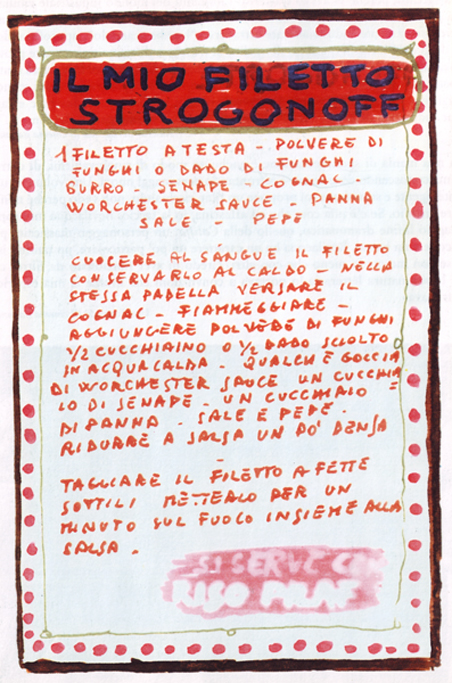 IL MIO FILETTO
STROGONOFF
1 FILETTO A TESTA - POLVERE DI
FUNGHI O DADO DI FUNGHI
BURRO - SENAPE - COGNAC -
WORCHESTER SAUCE - PANNA
SALE - PEPE
CUOCERE AL SANGUE IL FILETTO
CONSERVARLO AL CALDO - NELLA
STESSA PADELLA VERSARE IL
COGNAC - FIAMMEGGIARE -
AGGIUNGERE POLVERE DI FUNGHI
1/2 CUCCHIAINO O 1/2 DADO SCIOLTO
IN ACQUA CALDA. QUALCHE GOCCIA
DI WORCHESTER SAUCE UN CUCCHIA
IO DI SENAPE - UN CUCCHIAIO =
DI PANNA - SALE E PEPE.
RIDURRE A SALSA UN PO' DENSA
-
TAGLIARE IL FILETTO A FETTE
SOTTILI METTERLO PER UN
MINUTO SUL FUOCO INSIEME ALLA
SALSA.
SI SERVE CON
RISO PILAF